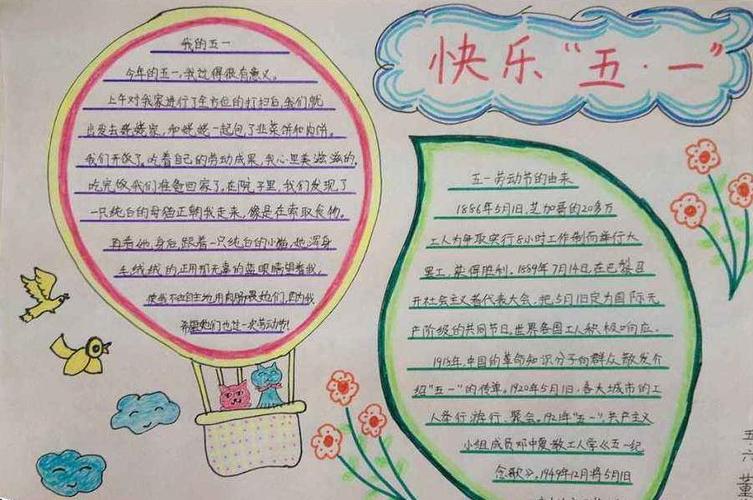 快乐“五·一”
我的五一
今年的五一,我过得很有意义。
上午对我家进行了全方位的打扫后,我们就
出发去姥姥家,和姥姥一起包了韭菜饼和肉饼。
我们开饭了,吃着自己的劳动成果,我心里美滋滋的。
吃完饭,我们准备回家了,在院子里,我们发现了
一只纯白的母猫正朝我走来,像是在索取食物。
再看她身后,跟着一只纯白的小猫,她浑身
毛绒绒的,正用那无辜的蓝眼睛望着我,
使我不由自主地用肉肠喂她们,因为我
希望她们也过一次劳动节!
五一劳动节的由来
1886年5月1日,芝加哥的20多万
工人为争取实行8小时工作制而举行大
罢工,获得胜利。1889年7月14日,在巴黎召
开社会主义者代表大会,把5月1日定为国际无
产阶级的共同节日,世界各国工人积极响应。
1918年,中国的革命知识分子向群众散发介
绍“五一”的传单。1920年5月1日,各大城市的工
人举行游行、聚会。1921年“五一”,共产主义
小组成员邓中夏教工人学《五一纪
念歌》。1949年12月将5月1日
五
六
董